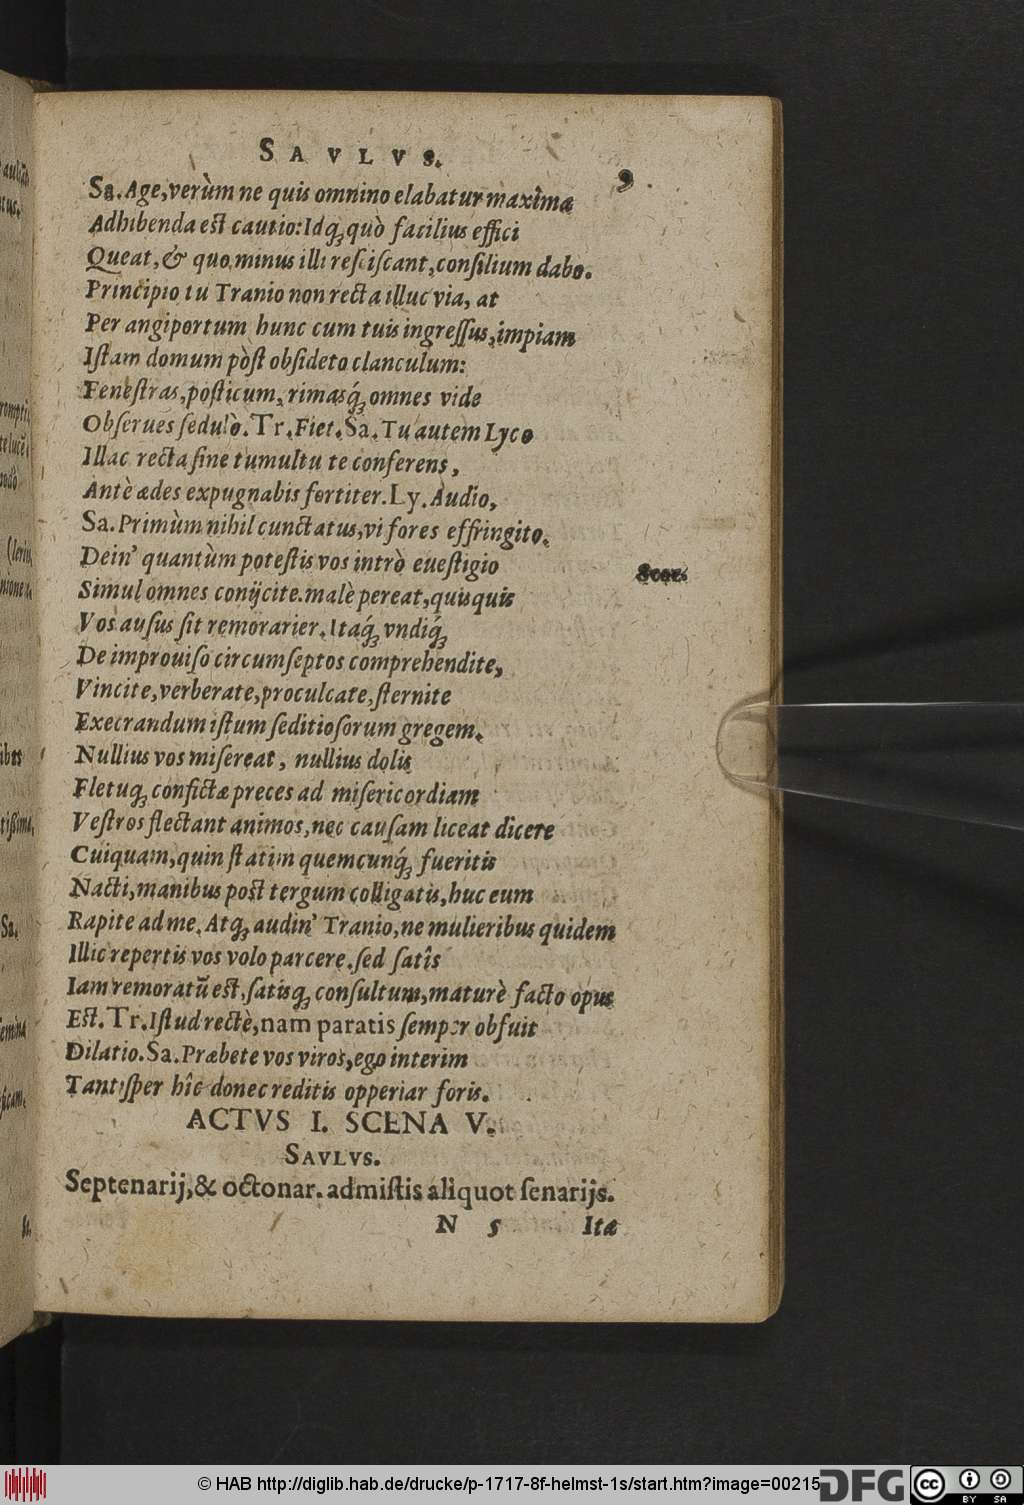 SAVLVS. 9
Sa. Age, verùm ne quis omnino elabatur maxima
Adhibenda est cautio: Idq́; quò facilius effici
Queat, & quo minus illi resciscant, consilium dabo.
Principio tu Tranio non recta illuc via, at
Per angiportum hunc cum tuis ingressus, impiam
Istam domum pòst obsideto clanculum:
Fenestras, posticum, rimasq́; omnes vide
Obserues sedulò. Tr. Fiet. Sa. Tu autem Lyco
Illac recta sine tumultu te conferens,
Antè ædes expugnabis fortiter. Ly. Audio,
Sa. Primùm nihil cunctatus, vi fores effringito.
Dein' quantùm potestis vos intrò euestigio
Simul omnes conijcite. malè pereat, quisquis
Vos ausus sit remorarier. Itaq́; vndiq́;
De improuiso circumseptos comprehendite,
Vincite, verberate, proculcate, sternite
Execrandum istum seditiosorum gregem.
Nullius vos misereat, nullius dolis
Fletuq; confictæ preces ad misericordiam
Vestros flectant animos, nec causam liceat dicere
Cuiquam, quin statim quemcunq́; fueritis
Nacti, manibus post tergum colligatis, huc eum
Rapite ad me. Atq; audin' Tranio, ne mulieribus quidem
Illic repertis vos volo parcere. sed satîs
Iam remoratū est, satisq; consultum, maturè facto opus
Est. Tr. Istud rectè, nam paratis semper obfuit
Dilatio. Sa. Præbete vos viros, ego interim
Tantisper hîc donec reditis opperiar foris.
ACTVS I. SCENA V.
SAVLVS.
Septenarij, & octonar. admistis aliquot senarijs.
N 5 Ita
© HAB http://diglib.hab.de/drucke/p-1717-8f-helmst-1s/start.htm?image=00215
DFG
cc BY SA